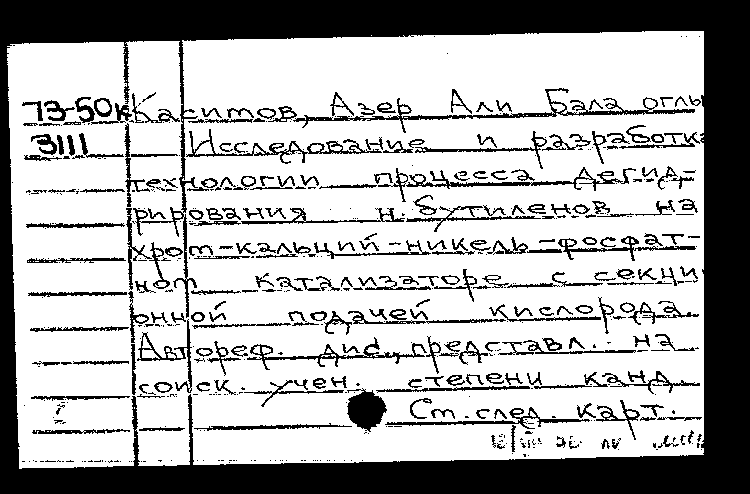 73-50к Касимов, Азер Али Бала оглы
3111 Исследование и разработка
технологии процесса дегид-
рирования н.бутиленов на
хром-кальций-никель-фосфат-
ном катализаторе с секци
онной подачей кислорода.
Автореф. дис., представл. на
соиск. учен. степени канд.
См. след. карт.